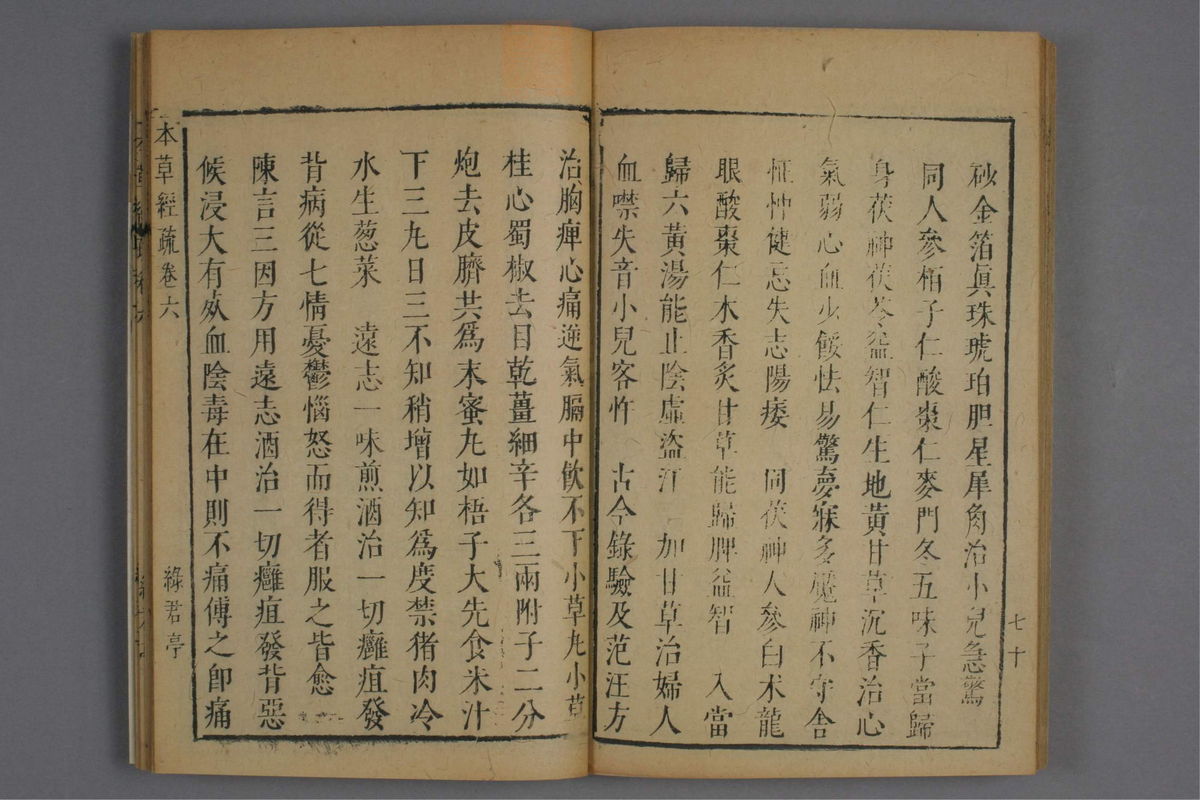 七十
砂金箔眞珠琥珀胆星犀角治小兒急驚
同人參栢子仁酸棗仁麥門冬五味子當歸
身茯神茯苓益智仁生地黃甘草沉香治心
氣弱心血少餒怯易驚夢寐多魘神不守舍
怔忡健忘失志陽痿　同茯神人參白朮龍
眼酸棗仁木香炙甘草能歸脾益智　入當
歸六黃湯能止陰虛盜汗　加甘草治婦人
血噤失音小兒客忤　古今錄驗及范汪方
治胸痺心痛逆氣膈中飲不下小草丸小草
桂心蜀椒去目乾薑細辛各三兩附子二分
炮去皮臍共爲末蜜丸如梧子大先食米汁
下三丸日三不知稍增以知爲度禁猪肉冷
水生葱菜　遠志一味煎酒治一切癰疽發
背病從七情憂鬱惱怒而得者服之皆愈
陳言三因方用遠志酒治一切癰疽發背惡
候浸大有効血陰毒在中則不痛傅之卽痛
本草經疏卷六
綠君亭